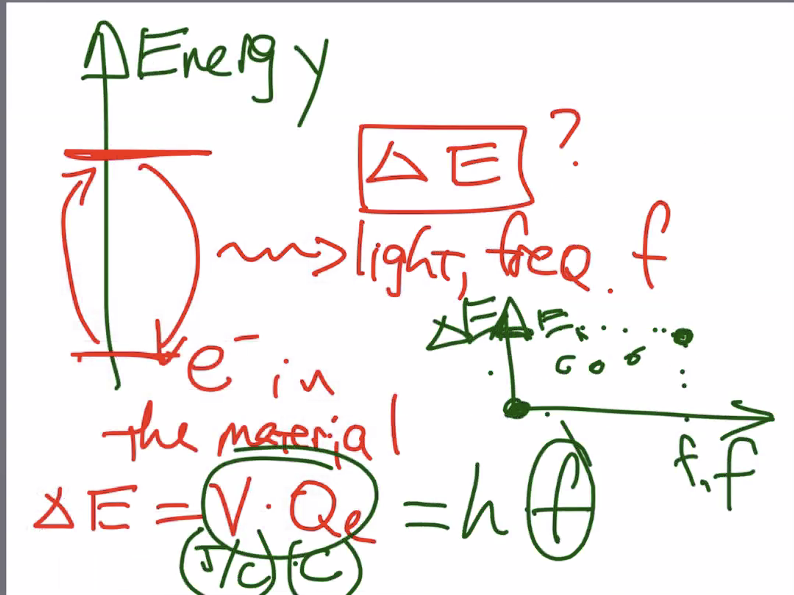 Energy
ΔE ?
light, freq. f
e⁻ in
the material
ΔE
f, f
ΔE = V · Qe = h f
J/C C